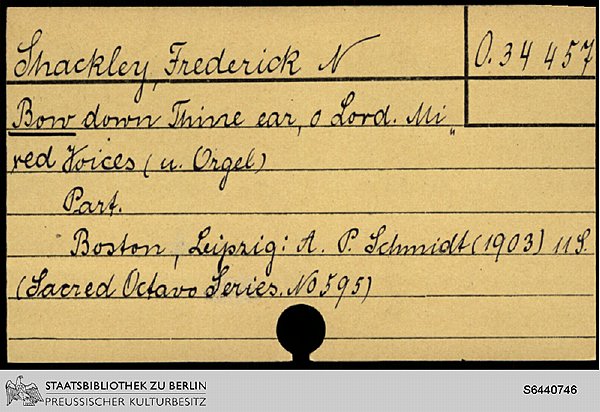 Shackley, Frederick N
O. 34 457
Bow down Thine ear, o Lord. Mi„
red Voices (u. Orgel)
Part.
Boston, Leipzig: A. P. Schmidt (1903) 11 S.
(Sacred Octavo Series. No 595)
STAATSBIBLIOTHEK ZU BERLIN
PREUSSISCHER KULTURBESITZ
S6440746